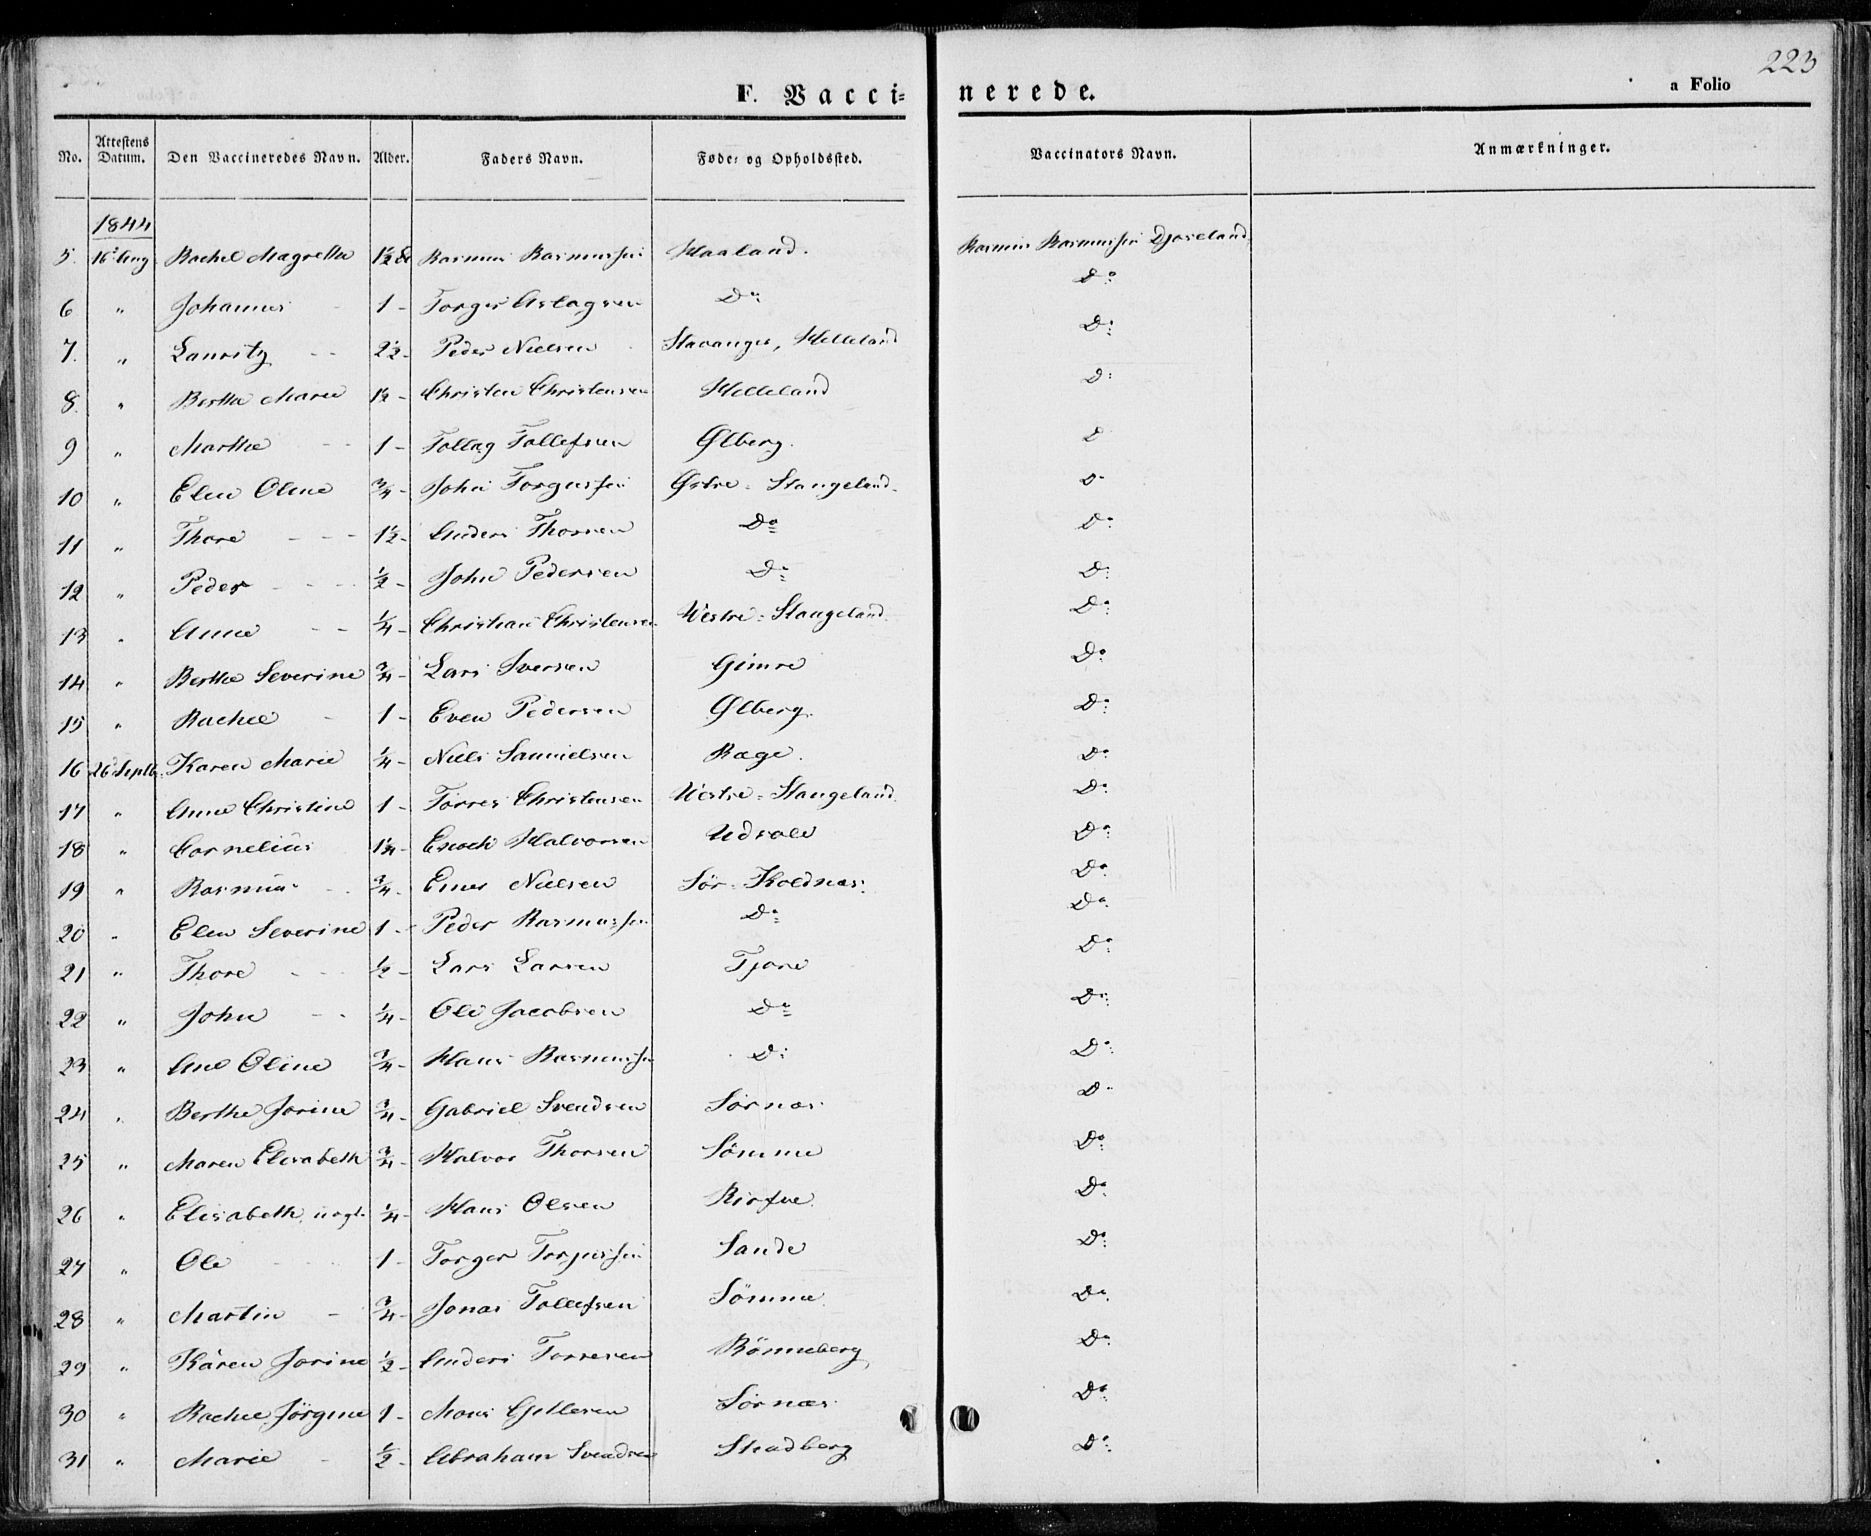 223
F. Vacci= nerede. a Folio
No. Attestens Datum. Den Vaccineredes Navn. Alder. Faders Navn. Føde= og Opholdssted. Vaccinators Navn. Anmærkninger.
1844
5. 16 Aug Rachel Magrethe 1½ Rasmus Rasmussen Haaland. Rasmus Rasmussen Djoseland
6 " Johannes 1 - Torger Aslagsen Do Do
7. " Lauritz - - 2½ - Peder Nielsen Stavanger, Helleland Do
8. " Berthe Marie 1½ - Christen Christensen Helleland Do
9 " Marthe - - 1 - Tollag Tollefsen Ølberg. Do
10 " Elen Oline ¾ - John Torgersen Østre - Stangeland. Do
11 " Thore - - - 1½ - Anders Thorsen Do Do
12 " Peder - - - ½ - John Pedersen Do Do
13 " Anne - - ¼ - Christian Christensen Westre - Stangeland. Do
14 " Berthe Severine ¾ - Lars Iversen Gimre Do
15 " Rachel - 1 - Even Pedersen Ølberg. Do
16 26 Septb. Karen Marie ¼ - Niels Samuelsen Ræge. Do
17 " Anne Christine 1 - Torres Christensen Westre - Stangeland. Do
18 " Cornelius 1¼ - Enoch Halvorsen Udsole Do
19 " Rasmus - - ¾ - Nielsen Sør - Koldnæs. Do
20 " Elen Severine 1 - Peder Rasmussen Do Do
21 " Thore - - ½ - Lars Larsen Tjore Do
22 " John - - ¼ - Ole Jacobsen Do Do
23 " Ane Oline ¾ - Hans Rasmussen Do Do
24 " Berthe Jorine ¾ - Gabriel Svendsen Sørnæs Do
25 " Maren Elisabeth ¾ - Halvor Thorsen Sömme Do
26 " Elisabeth, uægte ¼ - Hans Olsen Do
27 " Ole - - 1 - Torger Torjussen Sande Do
28 " Martin - ¾ - Jonas Tollefsen Sömme Do
29 " Karen Jorine ½ - Anders Torresen Rönneberg Do
30 " Rachel Jörgine 1 - Mons Sørnæs Do
31 " Marie - ½ - Abraham Svendsen Stadberg Do